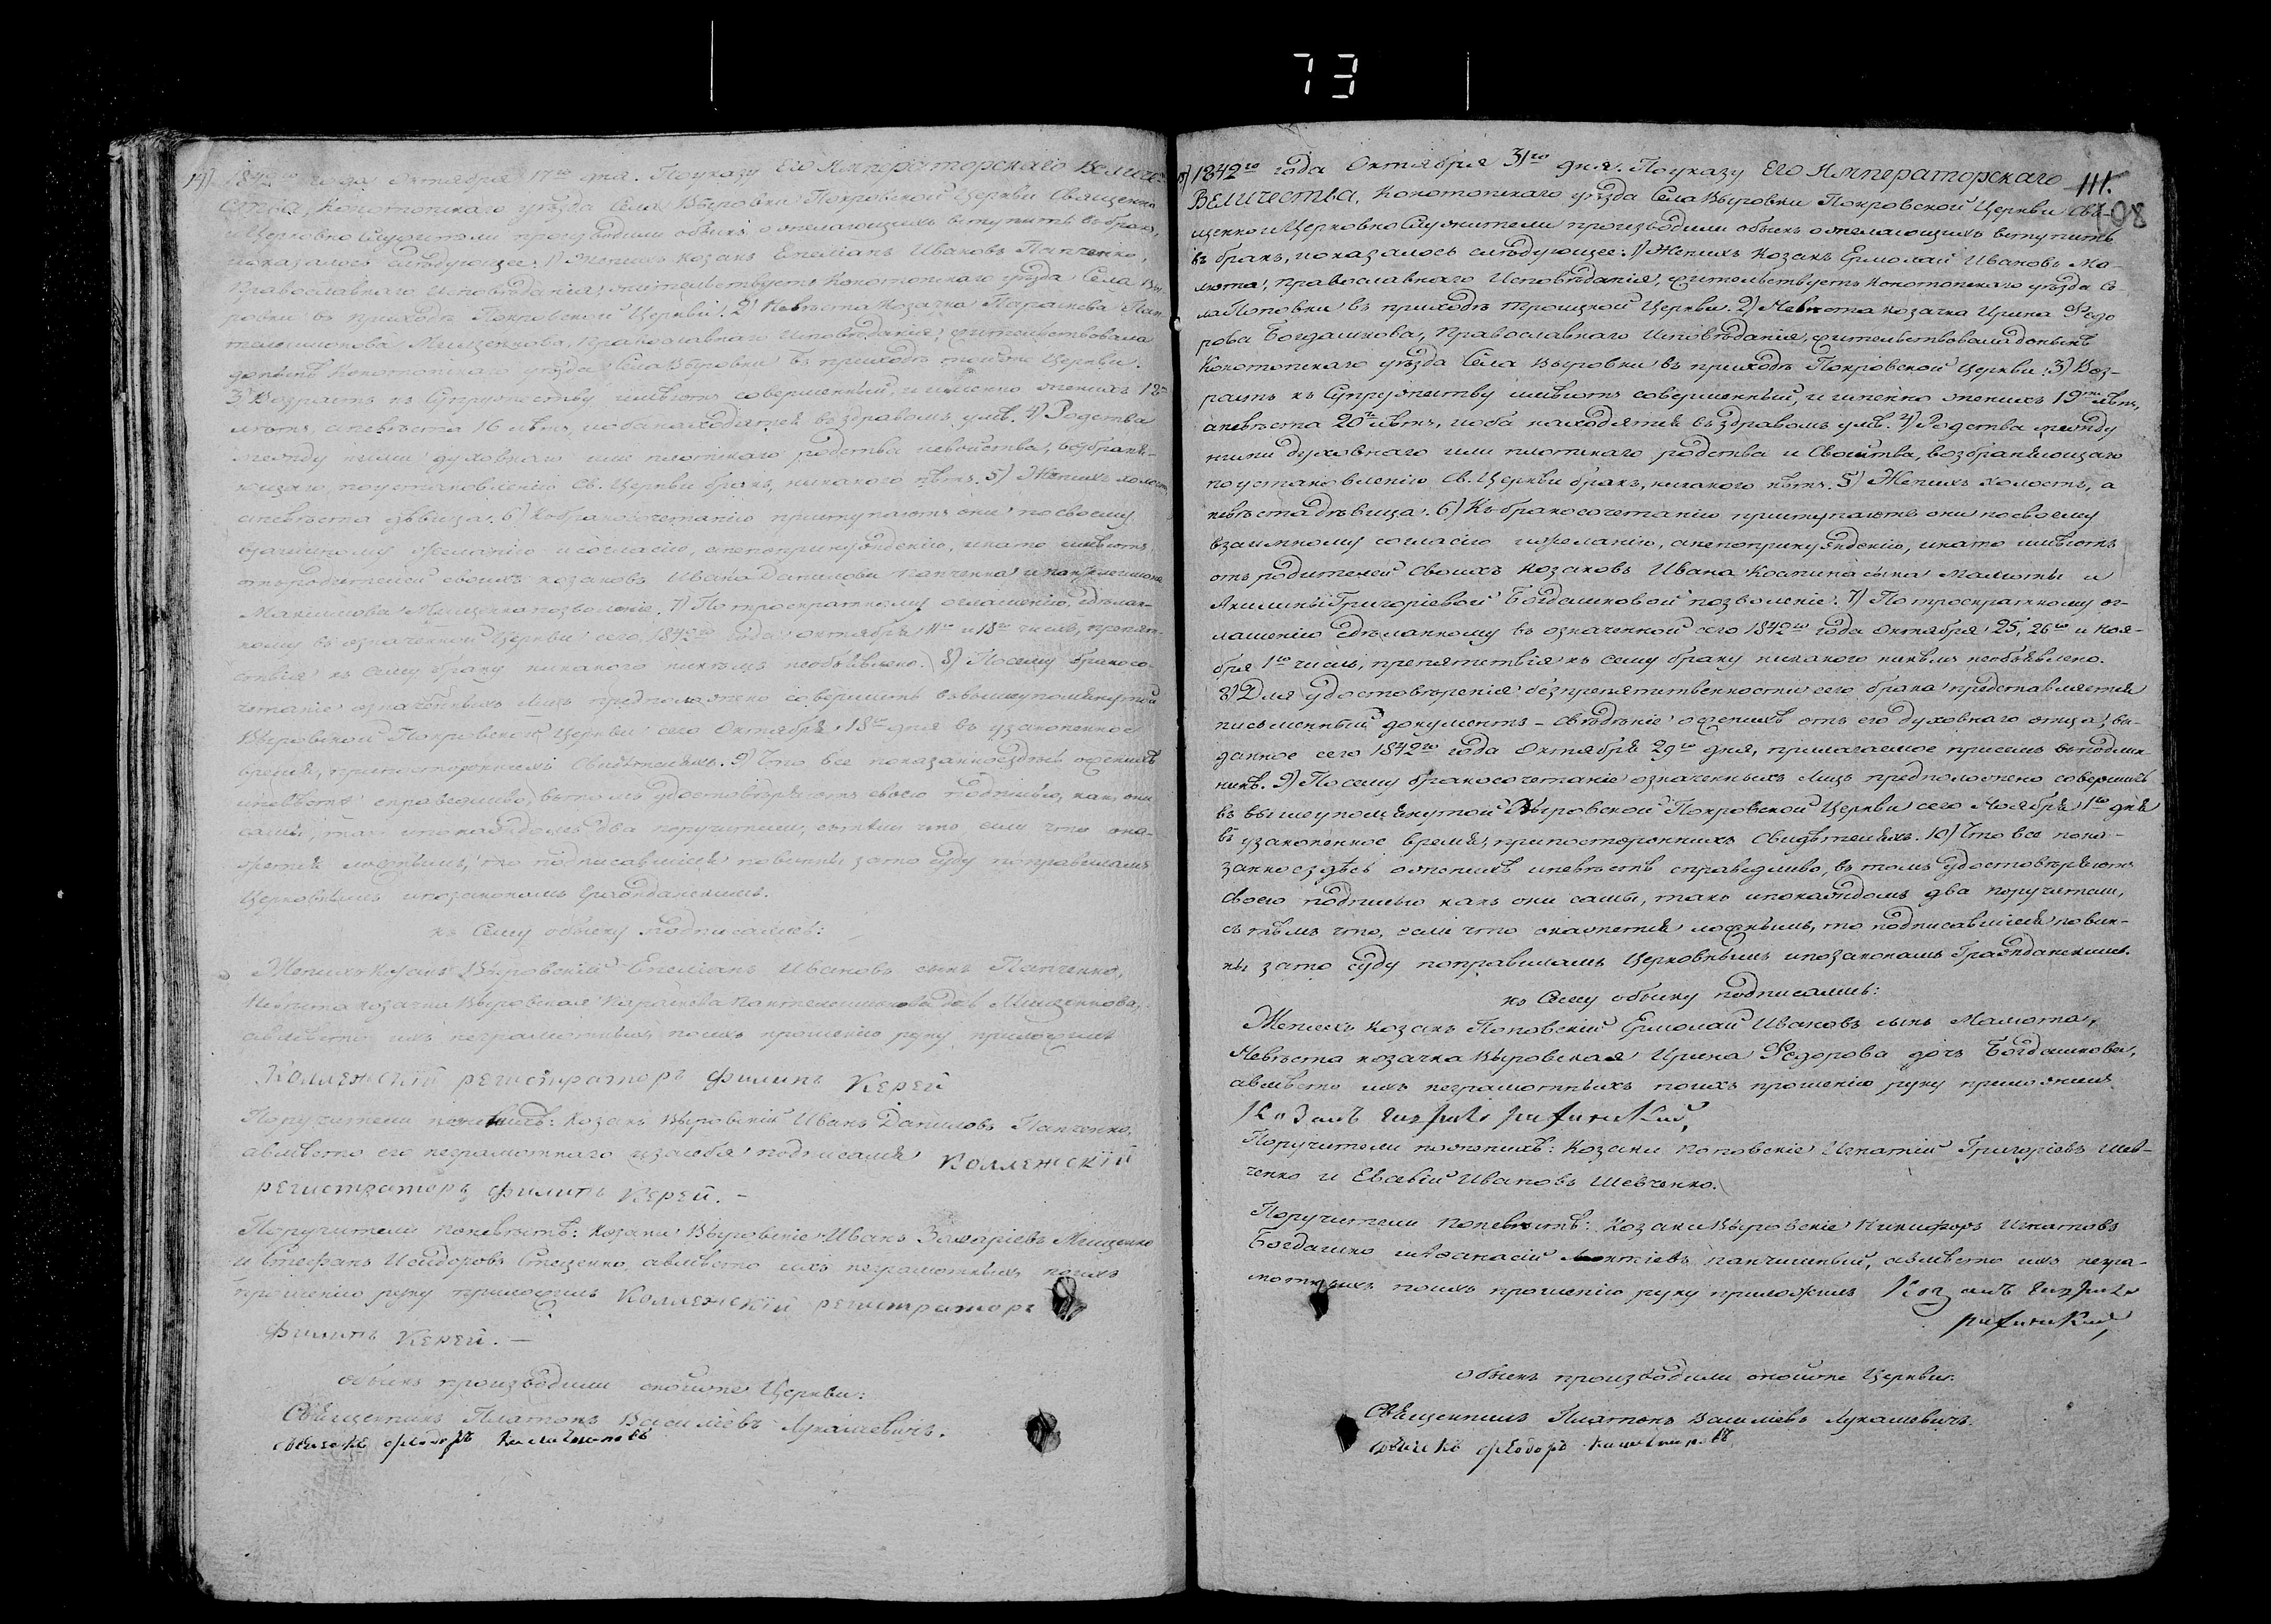 73
19) 1842го года Октября 17го дня. По указу Его Императорскаго Величе-
ства, Конотопскаго уѣзда Села Выровки Покровской Церкви Священно
и Церковно Служители производили обыскъ о желающихъ вступить въ бракъ,
и оказалось слѣдующее: 1) Женихъ Козакъ Емеліанъ Ивановъ Панченко,
Православнаго Исповѣданія, жительствуетъ Конотопскаго уѣзда Села Вы-
ровки въ приходѣ Покровской Церкви. 2) Невѣста козачка Параскева Пан-
телеимонова Мищенкова, православнаго Исповѣданія, жительствовала
донынѣ Конотопскаго уѣзда Села Выровки въ приходѣ той же Церкви.
3) Возрастъ къ Супружеству имѣютъ совершенный, и именно женихъ 18
лѣтъ, а невѣста 16 лѣтъ, и оба находятся въ здравомъ умѣ. 4) Родства
между ними духовнаго или плотскаго родства и свойства, возбраня-
ющаго, по установленію Св. Церкви бракъ, никакого нѣтъ. 5) Женихъ холостъ,
а невѣста дѣвица. 6) Къ бракосочетанію приступаютъ они по своему
взаимному желанію и согласію, а не по принужденію, и на то имѣютъ
отъ родителей своихъ козаковъ Ивана Данилова Панченка и Пантелеимона
Максимова Мищенка позволеніе. 7) По троекратному оглашенію, сдѣлан-
ному въ означенной Церкви сего 1842го года октября 11го и 18го числъ, препят-
ствія къ сему браку никакого никѣмъ не объявлено. 8) Посему бракосо-
четаніе означенныхъ лицъ предположено совершить въ вышеупомянутой
Выровской Покровской Церкви сего Октября 18го дня въ узаконенное
время, при постороннихъ Свидѣтеляхъ. 9) Что все показанное здѣсь о женихѣ
и невѣстѣ справедливо, въ томъ удостовѣряютъ своею подписью, какъ они
сами, такъ и по каждомъ два поручители, съ тѣмъ что, если что ока-
жется ложнымъ, то подписавшіеся повинны за то суду по правиламъ
Церковнымъ и по законамъ Гражданскимъ.
къ Сему обыску подписались:
Женихъ козакъ Выровскій Емеліанъ Ивановъ сынъ Панченко,
Невѣста козачка Выровская Параскева Пантелеимонова дочь Мищенкова,
а вмѣсто ихъ неграмотныхъ по ихъ прошенію руку приложилъ
Коллежскій регистраторъ Филипъ Керей
Поручители по женихѣ: козакъ Выровскій Иванъ Даниловъ Панченко,
а вмѣсто его неграмотнаго и за себя подписался Коллежскій
регистраторъ Филипъ Керей. –
Поручители по невѣстѣ: козаки Выровскіе Иванъ Захаріевъ Мищенко
и Стефанъ Исидоровъ Стеценко, а вмѣсто ихъ неграмотныхъ по ихъ
прошенію руку приложилъ Коллежскій регистраторъ
Филипъ Керей. –
обыскъ производили оной же Церкви:
Священникъ Платонъ Василіевъ Лукашевичъ.
Ѳеодоръ
1842го года Октября 31го дня. По указу Его Императорскаго
111.
98
Величества, Конотопскаго уѣзда Села Выровки Покровской Церкви Свя-
щенно и Церковно Служители производили обыскъ о желающихъ вступить
въ бракъ, и оказалось слѣдующее: 1) Женихъ Козакъ Ермолай Ивановъ Ма-
мота, православнаго Исповѣданія, жительствуетъ Конотопскаго уѣзда Се-
ла Поповки въ приходѣ Троицкой Церкви. 2) Невѣста козачка Ирина Ѳедо
рова Богдашкова, православнаго Исповѣданія, жительствовала донынѣ
Конотопскаго уѣзда Села Выровки въ приходѣ Покровской Церкви. 3) Воз-
растъ къ Супружеству имѣютъ совершенный, и именно женихъ 19ть лѣтъ,
а невѣста 20ть лѣтъ, и оба находятся въ здравомъ умѣ. 4) Родства между
ними духовнаго или плотскаго родства и Свойства, возбраняющаго
по установленію Св. Церкви бракъ, никакого нѣтъ. 5) Женихъ холостъ, а
невѣста дѣвица. 6) Къ бракосочетанію приступаютъ они по своему
взаимному согласію и желанію, а не по принужденію, и на то имѣютъ
отъ родителей своихъ козаковъ Ивана сына Мамоты и
Акилины Григоріевой Богдашковой позволеніе. 7) По троекратному ог-
лашенію сдѣланному въ означенной сего 1842го года Октября 25, 26го и Ноя-
бря 1го числъ, препятствія къ сему браку никакого никѣмъ не объявлено.
8) Для удостовѣренія безпрепятственности сего брака представляется
письменный документъ – свѣдѣніе о женихѣ отъ его духовнаго отца, вы-
данное сего 1842го года Октября 29го дня, прилагаемое при семъ въ подлин-
никѣ. 9) Посему бракосочетаніе означенныхъ лицъ предположено совершить
въ вышеупомянутой Выровской Покровской Церкви сего Ноября 1го дня
въ узаконенное время, при постороннихъ Свидѣтеляхъ. 10) Что все пока-
занное здѣсь о женихѣ и невѣстѣ справедливо, въ томъ удостовѣряютъ
своею подписью какъ они сами, такъ и по каждомъ два поручители,
съ тѣмъ что, если что окажется ложнымъ, то подписавшіеся повин-
ны за то суду по правиламъ Церковнымъ и по законамъ Гражданскимъ.
къ Сему обыску подписались:
Женихъ козакъ Поповскій Ермолай Ивановъ сынъ Мамота,
Невѣста козачка Выровская Ирина Ѳедорова дочь Богдашкова,
а вмѣсто ихъ неграмотныхъ по ихъ прошенію руку приложилъ
Козакъ
Поручители по женихѣ: Козаки Поповскіе Игнатій Григоріевъ Шев-
ченко и Евсевій Ивановъ Шевченко.
Поручители по невѣстѣ: Козаки Выровскіе Никифоръ Игнатовъ
Богдашко и Аѳанасій а вмѣсто ихъ негра-
мотныхъ по ихъ прошенію руку приложилъ Козакъ
обыскъ производили оной же Церкви:
Священникъ Платонъ Василіевъ Лукашевичъ.
Ѳеодоръ